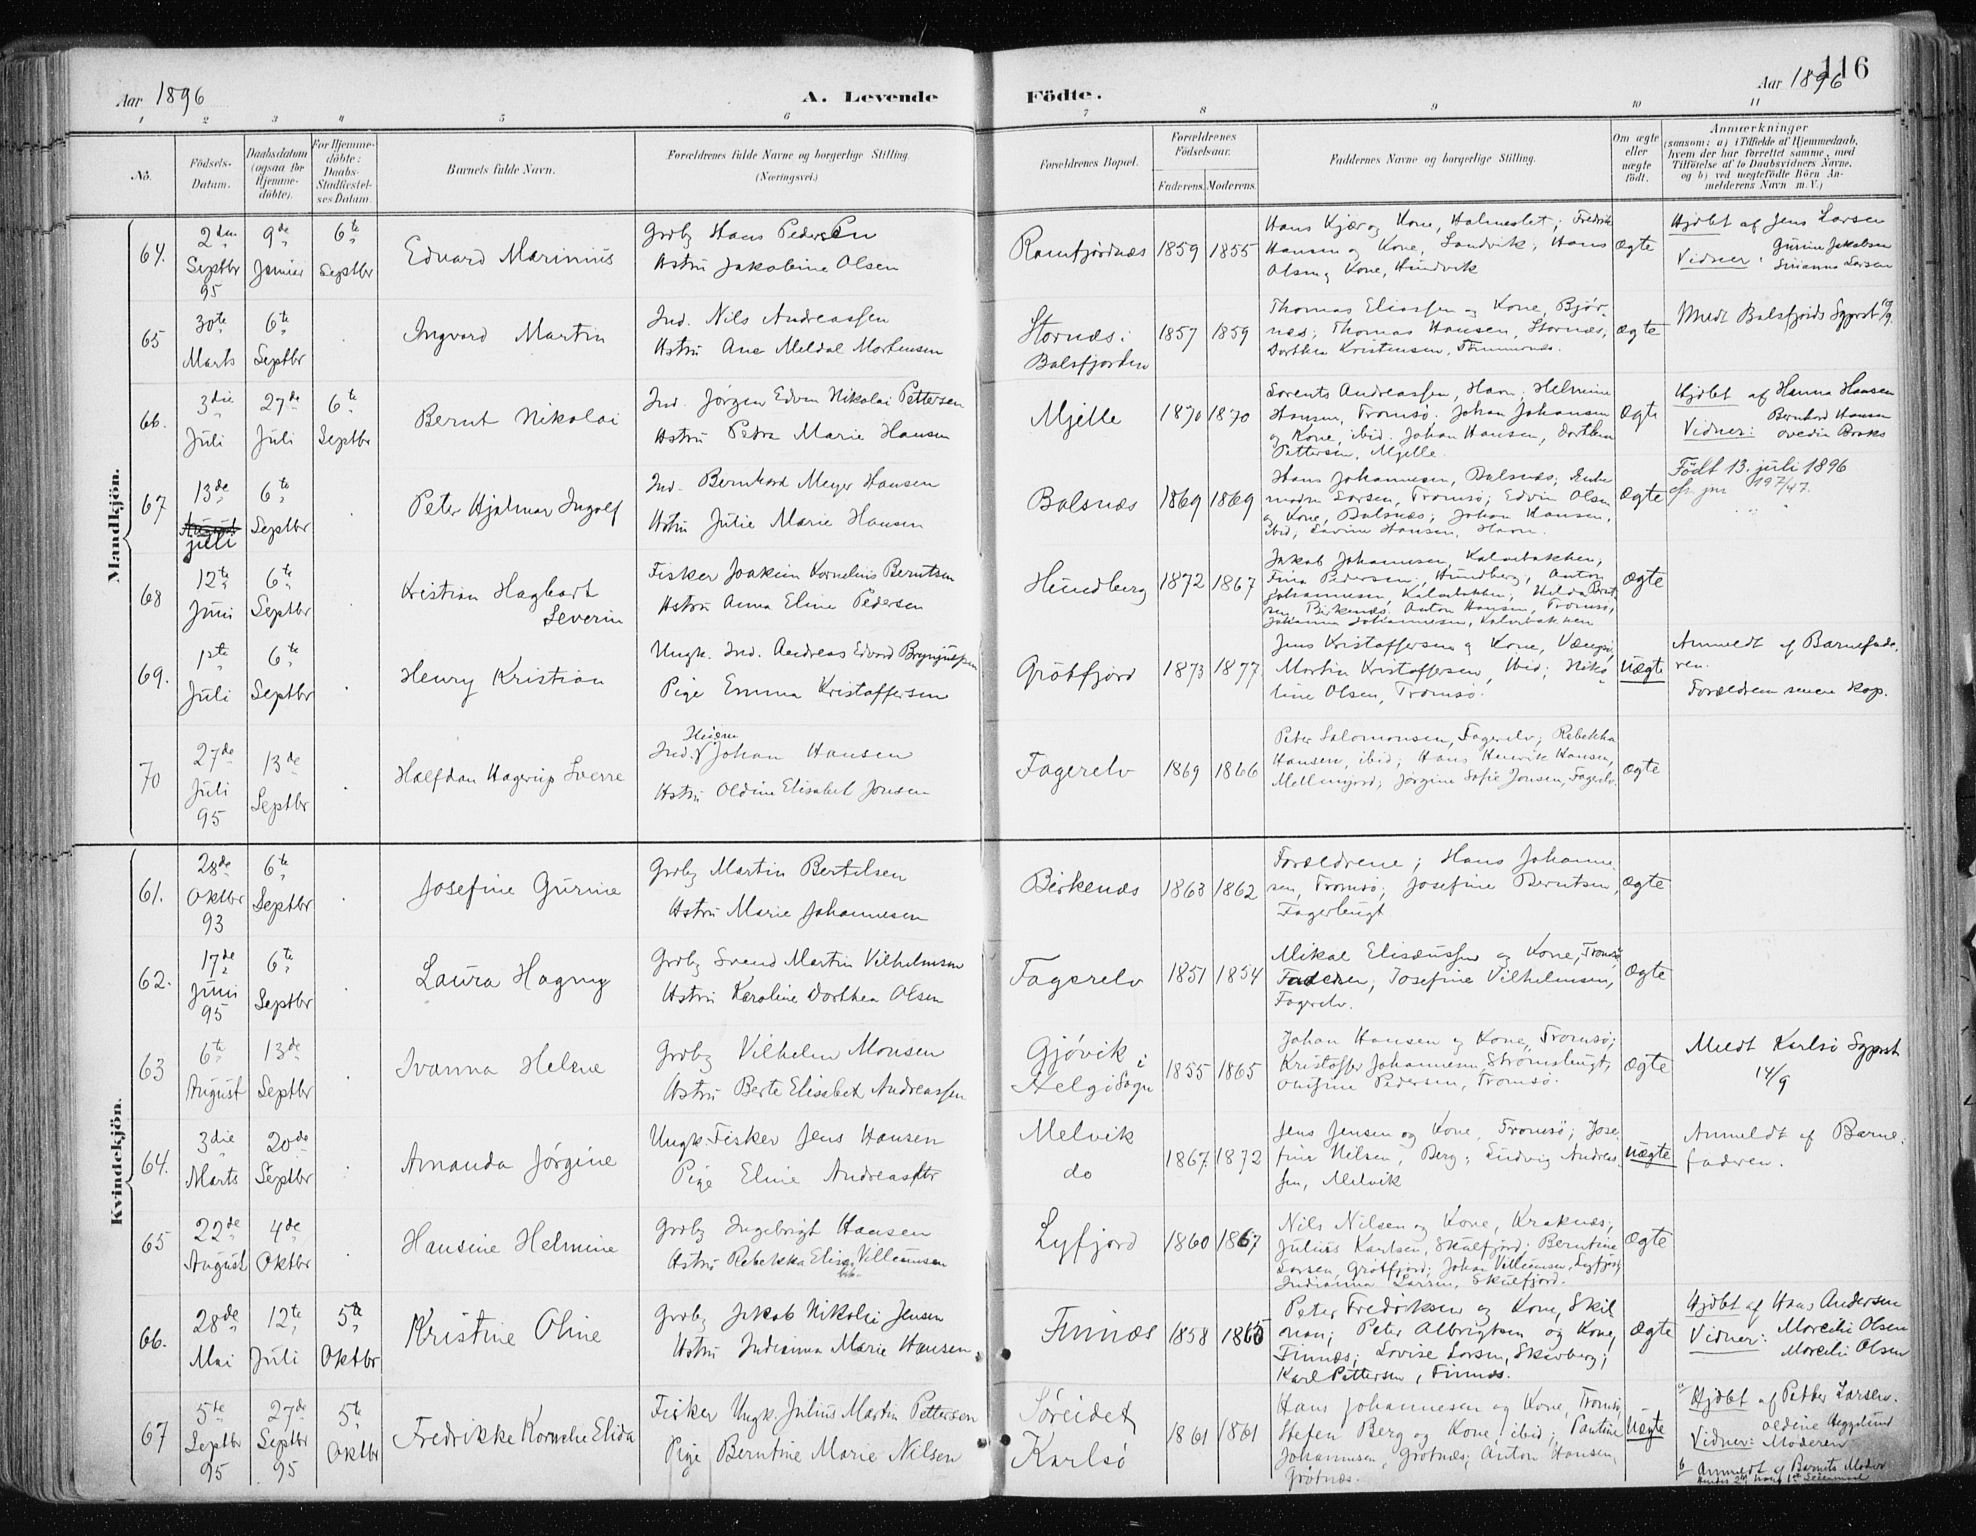 116
Aar 1896 A. Levende Födte. Aar 1896
1 2 3 4 5 6 7 8 9 10 11
No. Födsels-Datum. Daabsdatum (ogsaa for Hjemme-döbte). For Hjemme-döbte: Daabs-Stadfæstel-ses Datum. Barnets fulde Navn. Forældrenes fulde Navne og borgerlige Stilling (Næringsvei.) Forældrenes Bopæl. Forældrenes Födselsaar. Faderens. Moderens. Faddernes Navne og borgerlige Stilling. Om ægte eller uægte födt. Anmærkninger (saasom: a) i Tilfælde af Hjemmedaab, hvem der har forrettet samme, med Tilföielse af to Daabsvidners Navne, og b) ved uægtefödte Börn An-melderens Navn m. V.)
Mandkjön.
64. 2den Septbr 95 9de Januar 6te Septbr
Eduard Marinius
Grdbr Hans Pedersen
Hstru Jakobine Olsen
Ramfjordnæs 1859 1855
Hans Kjær og Kone, Holmeslet; Fredrik
Hansen og Kone, Sandvik; Hans
Olsen og Kone, Hundvik
ægte
Hjdbt af Jens Larsen
Vidner: Gurine Jakobsen
Larsen
65 30te Marts 6te Septbr
Ingvard Martin
Ind. Nils Andreassen
Hstru Ane Meldal Mortensen
Stornæs i
Balsfjorden
1857 1859
Thomas Eliassen og Kone, Bjør-
næs; Thomas Hansen, Stornæs,
Dorthea Kristensen,
ægte
Medt Balsfjords Sgprst
66. 3die Juli 27de Juli 6te Septbr
Bernt Nikolai
Ind. Jörgen Edvin Nikolai Pettersen
Hstru Petra Marie Hansen
Mjelle 1870 1870
Sorents Andreassen, Havn; Helmine
Hansen, Tromsö. Johan Johansen
og Kone, ibid. Johan Hansen, Dorthea
Pettersen, Mjelle.
ægte
Hjdbt af Hanna Hansen
Vidner: Bernhard Hansen
67 13de August juli 6te Septbr
Peter Hjalmar Ingolf
Ind. Bernhard Meyer Hansen
Hstru Julie Marie Hansen
Balsnæs 1869 1869
Hans Johannesen, Balsnæs; Enke
Larsen, Tromsö; Edvin Olsen
og Kone, Balsnæs; Johan Hansen,
ibid; Lavine Hansen, Havn.
ægte
Født 13. juli 1896
197/47.
68 12te Juni 6te Septbr
Kristian Hagbart
Severin
Fisker Joakim Kornelius Berntsen
Hstru Anna Eline Pedersen
Hundberg 1872 1867
Jakob Johannesen, Kalvebakken;
Fina Pedersen, Hundberg, Anton
Johannesen, Kalvebakken; Hilda Bernt-
sen, Birkenæs. Anton Hansen, Tromsö,
Johanna Johannesen, Kalvebakken
ægte
69. 1ste Juli 6te Septbr
Henry Kristian
Ungk. Ind. Andreas Edvard Brynjulfsen
Pige Emma Kristoffersen
Grötfjord 1873 1877
Jens Kristoffersen og Kone, Vængsö,
Martin Kristoffersen, Ibid; Niko-
line Olsen, Tromsö.
uægte
Anmeldt af Barnefade-
ren.
Forældrene senere kop.
70 27de Juli 95 13de Septbr
Halfdan Hagerup Sverre
Ind. Johan Hansen
Hstru Oldine Elisabet Jensen
Fagerelv 1869 1866
Peter Salomonsen, Fagerelv; Rebekka
Hansen, ibid; Hans Henrik Hansen,
Mellemjord; Jörgine Sofie Jensen, Fagerelv.
ægte
Kvindekjön.
61. 28de Oktbr 93 6te Septbr
Josefine Gurine
Grdbr Martin Bertilsen
Hstru Marie Johannesen
Birkenæs 1863 1862
Forældrene; Hans Johanne-
sen, Tromsö; Josefine Berntsen,
Fagerbugt
ægte
62. 17de Juni 95 6te Septbr
Laura Hagny
Grdbr Svend Martin Vilhelmsen
Hstru Karoline Dorthea Olsen
Fagerelv 1851 1854
Mikal Elisæussen og Kone, Tromsö,
Faderen, Josefine Vilhelmsen,
Fagerelv.
ægte
63 6te August 13de Septbr
Ivanna Helene
Grdbr Vilhelm Monsen
Hstru Berte Elisabet Andreassen
Gjövik i
Helgö Sogn
1855 1865
Johan Hansen og Kone, Tromsö;
Kristoffer Johannesen, Strömsbugt,
Pedersen, Tromsö.
ægte
Medt Karlsö Sgprst
14/9
64. 3die Marts 20de Septbr
Amanda Jörgine
Ungk. Fisker Jens Hansen
Pige Eline Andreasdtr
Melvik
do
1867 1872
Jens Jensen og Kone, Tromsö; Jose-
fine Nilsen, Berg; Ludvig Andreas-
sen, Melvik
uægte
Anmeldt af Barne-
faderen.
65 22de August 4de Oktbr
Hansine Helmine
Grdbr Ingebrigt Hansen
Hstru Rebekka Elisa- Villumsen
Lyfjord 1860 1867
Nils Nilsen og Kone, Kraknæs,
Julius Karlsen, Skulfjord; Berntine
Larsen, Grötfjord; Johan Villumsen, Lyfjord,
Indianna Larsen, Skulfjord.
ægte
66. 28de Mai 12te Juli 5te Oktbr
Kristine Oline
Grdbr Jakob Nikolai Jensen
Hstru Indianna Marie Hansen
Finnæs 1858 1865
Peter Fredriksen og Kone, Skil-
Peter Albrigtsen og Kone,
Finnæs; Lovise Larsen, Skarberg;
Karl Pettersen, Finnæs.
ægte
Hjdbt af Hans Andersen
Vidner: Marcelie Olsen
Marcelie Olsen
67 5te Septbr 95 27de Septbr 95 5te Oktbr
Fredrikke Kornelie Elida
Fisker Ungk. Julius Martin Pettersen
Pige Berntine Marie Nilsen
Söreidet
Karlsö
1861 1861
Hans Johannesen og Kone, Tromsö,
Stefen Berg og Kone, ibid; Pauline
Johannesen, Grötnæs; Anton Hansen,
Grötnæs.
uægte
a Hjdbt af Petter Larsen.
Vidner: Oldine Heggelund
Moderen
b Anmeldt af Barnets Moder
Hendes 2det, hans 1ste Leiermaal